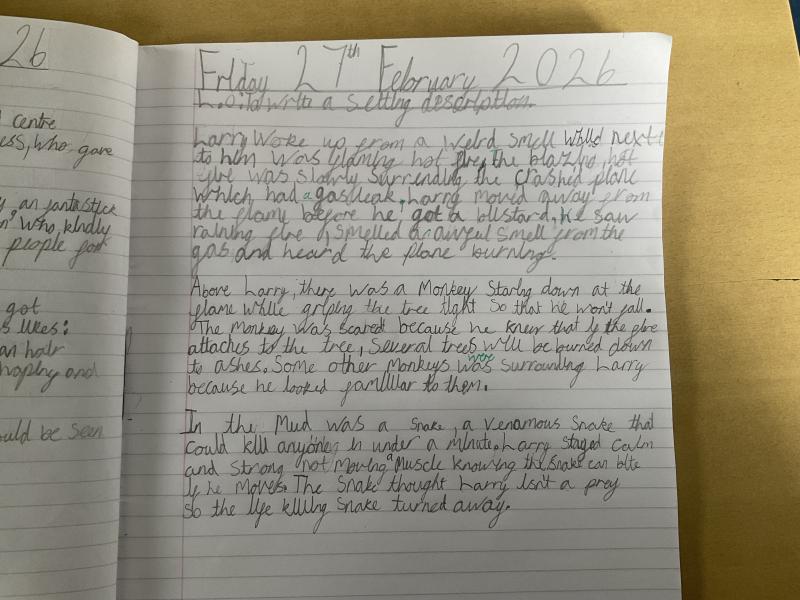 26
Friday 27th February 2026
L.O: To write a setting description.
centre
ess, who gave
y an fantastick
n" who, kindly
people for
got
s likes:
an hair
haping and
ould be seen
Larry woke up from a weird smell whild next
to him was flaming hot fire, The blazing hot
fire was slowly surrending the crashed plane
which had a gas leak. Larry moved away from
the flame before he got a blistard. He saw
raining fire, smelled a awful smell from the
gas and heard the plane burning.
Above Larry, there was a Monkey staring down at the
flame while griping the tree tight so that he won't fall.
The Monkey was scared because he knew that if the fire
attaches to the tree, several trees will be burned down
to ashes. Some other monkeys were was surrounding Larry
because he looked familliar to them.
In the Mud was a snake, a venamous snake that
could kill anyone in under a minute. Larry stayed calm
and strong not moving a muscle knowing the snake can bite
if he moves. The snake thought Larry isn't a prey
so the life killing snake turned away.